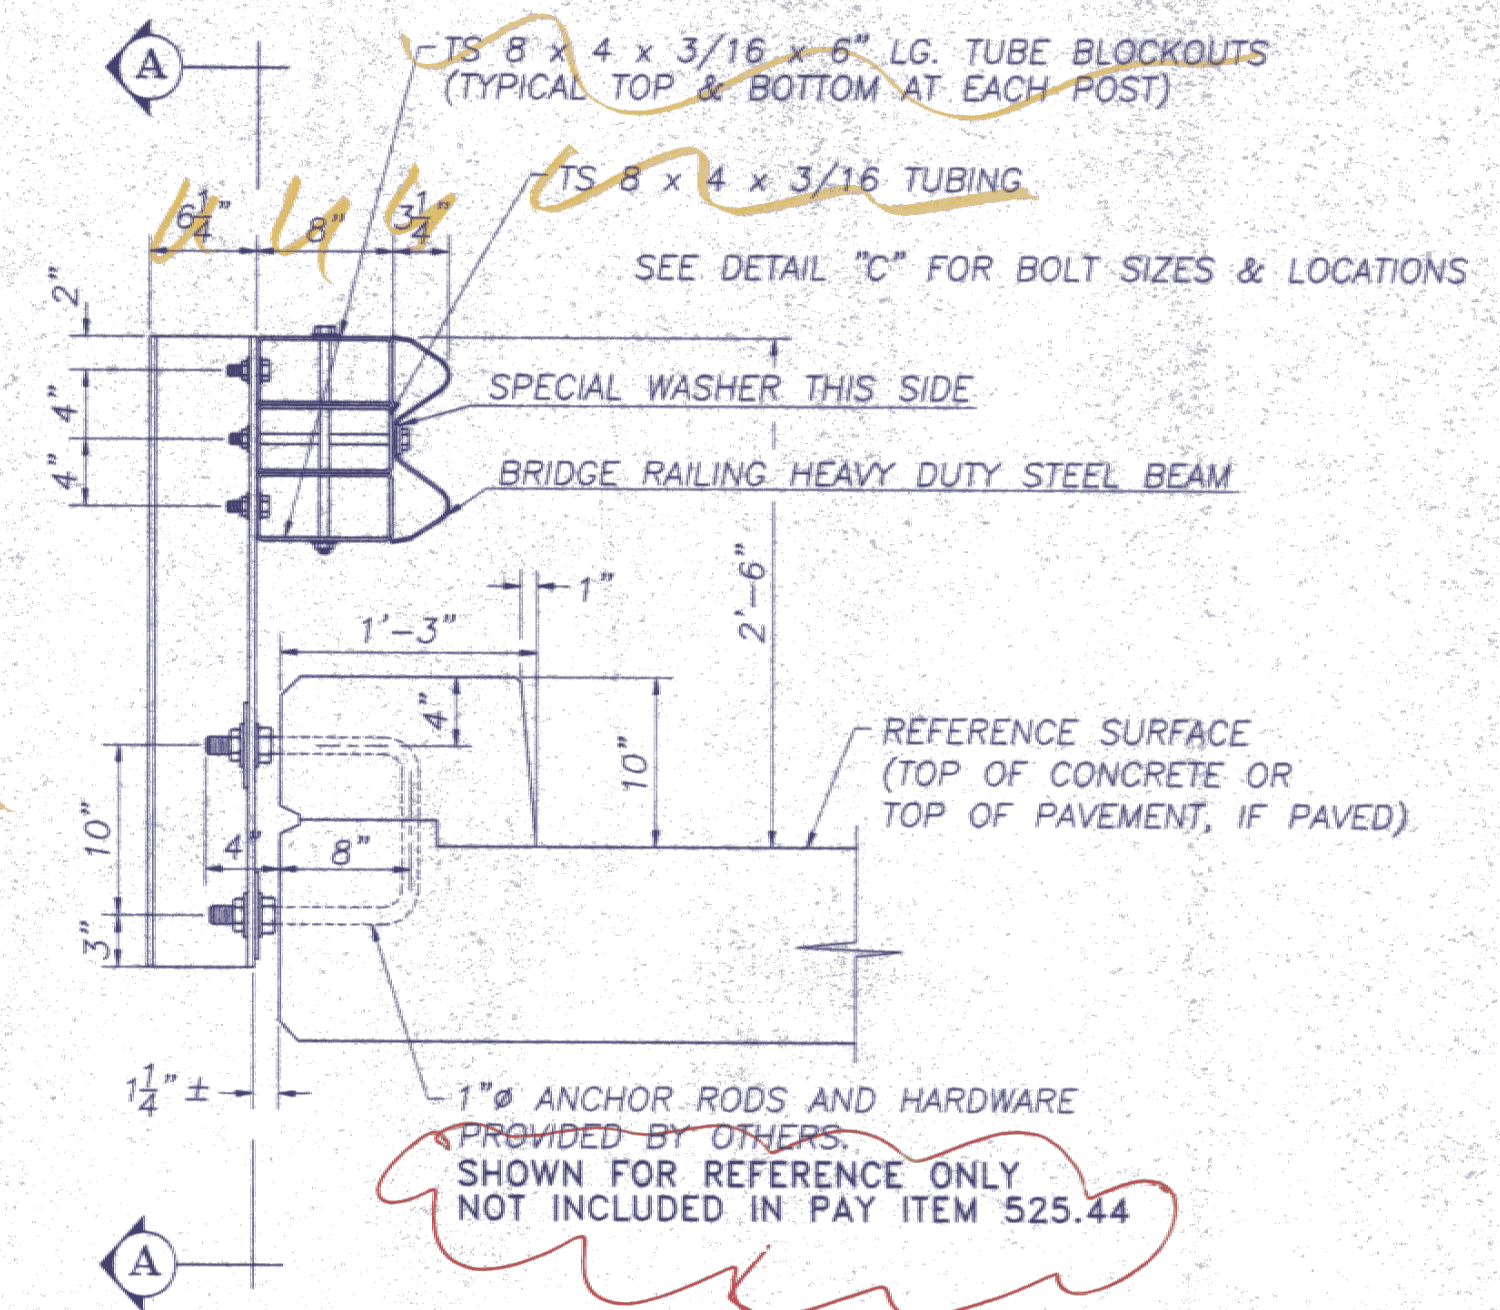 A
TS 8 x 4 x 3/16 x 6" LG. TUBE BLOCKOUTS
(TYPICAL TOP & BOTTOM AT EACH POST)
TS 8 x 4 x 3/16 TUBING
6 1/4"
8"
3 1/4"
SEE DETAIL "C" FOR BOLT SIZES & LOCATIONS
2"
4"
4"
SPECIAL WASHER THIS SIDE
BRIDGE RAILING HEAVY DUTY STEEL BEAM
1"
2'-6"
1'-3"
4"
10"
REFERENCE SURFACE
(TOP OF CONCRETE OR
TOP OF PAVEMENT, IF PAVED)
10"
4"
8"
3"
1 1/4" ±
1"ø ANCHOR RODS AND HARDWARE
PROVIDED BY OTHERS.
SHOWN FOR REFERENCE ONLY
NOT INCLUDED IN PAY ITEM 525.44
A